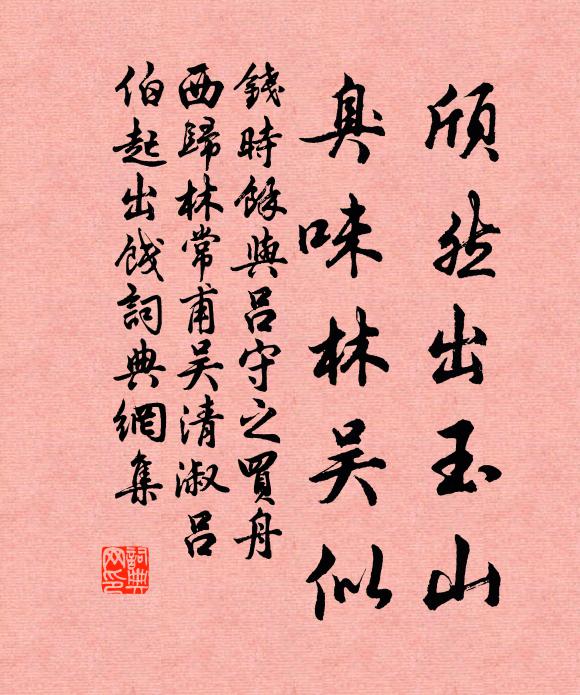 頎然出玉山
臭味林吳似
錢時餘與呂守之買舟
西歸林常甫吳清淑呂
伯起出餞詞典網集
詞典网印